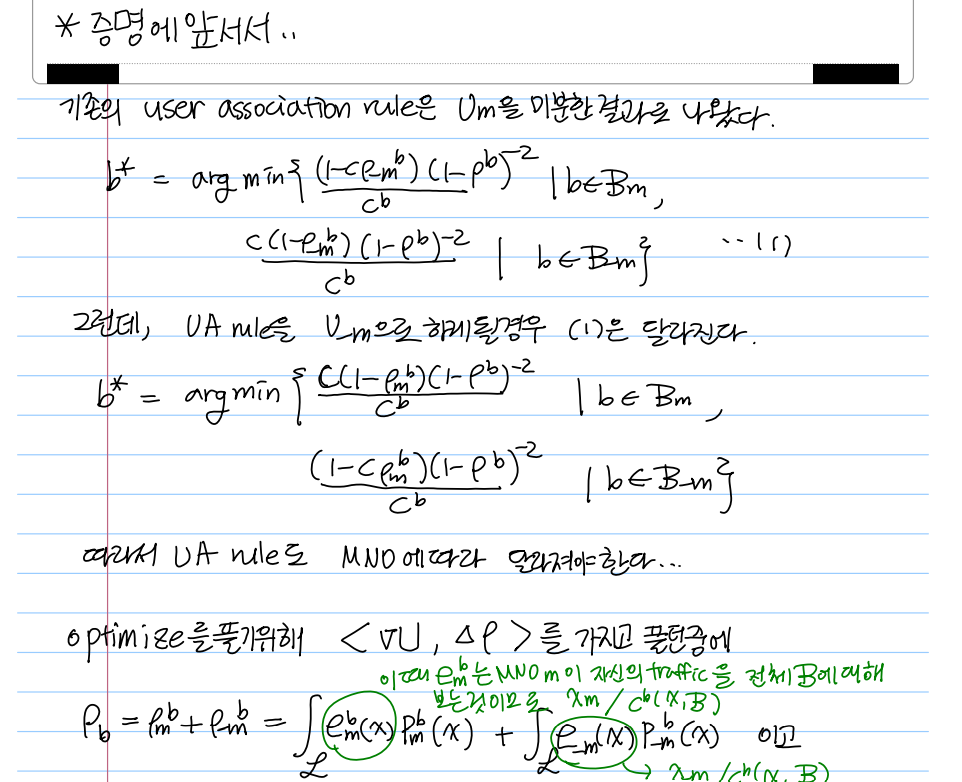 * 증명에 앞서서..
기존의 user association rule은 Um을 미분한 결과로 나왔다.
b* = arg min{ (1-cρ_-m^b)(1-ρ^b)^-2 / c^b | b∈Bm,
c(1-ρ_m^b)(1-ρ^b)^-2 / c^b | b∈B-m} ...(1)
그런데, UA rule을 U-m으로 하게될경우 (1)은 달라진다.
b* = argmin { c(1-ρ_m^b)(1-ρ^b)^-2 / c^b | b∈Bm,
(1-cρ_m^b)(1-ρ^b)^-2 / c^b | b∈B-m}
따라서 UA rule도 MNO에따라 달라져야한다...
optimize를 풀기위해 <∇U, Δρ>를 가지고 풀던중에
이때 ρ_m^b는 MNO m이 자신의 traffic을 전체 B에 대해
보는것이므로 λm / c^b(x,B)
ρ_b = ρ_m^b + ρ_-m^b = ∫_L ρ_m^b(x) p_m^b(x) + ∫_L ρ_-m(x) p_-m^b(x) 이고
→ λm / c^b(x, B)